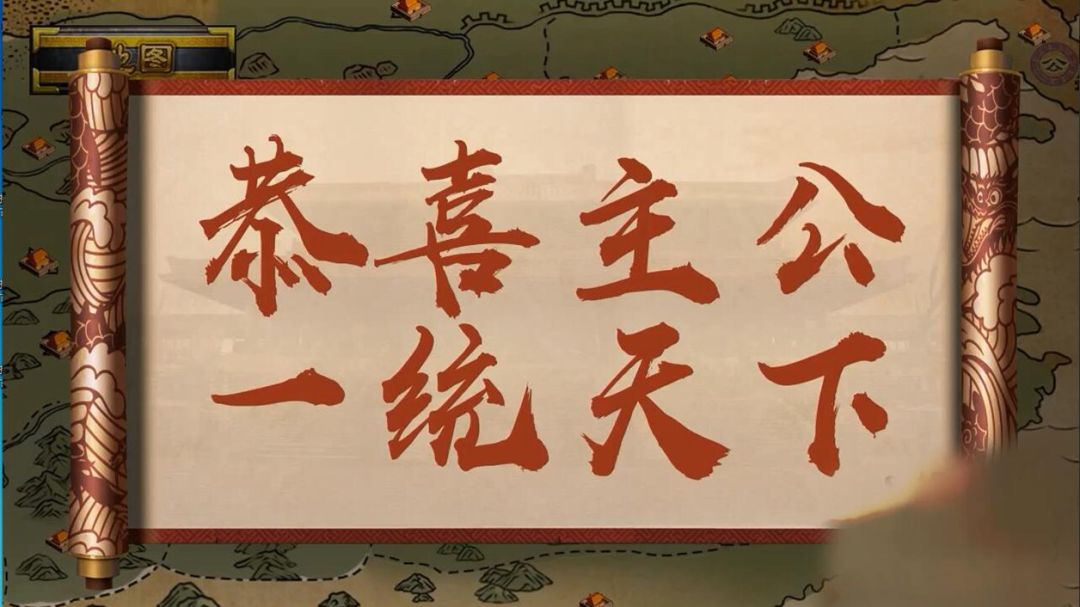 图
恭喜主公
一统天下